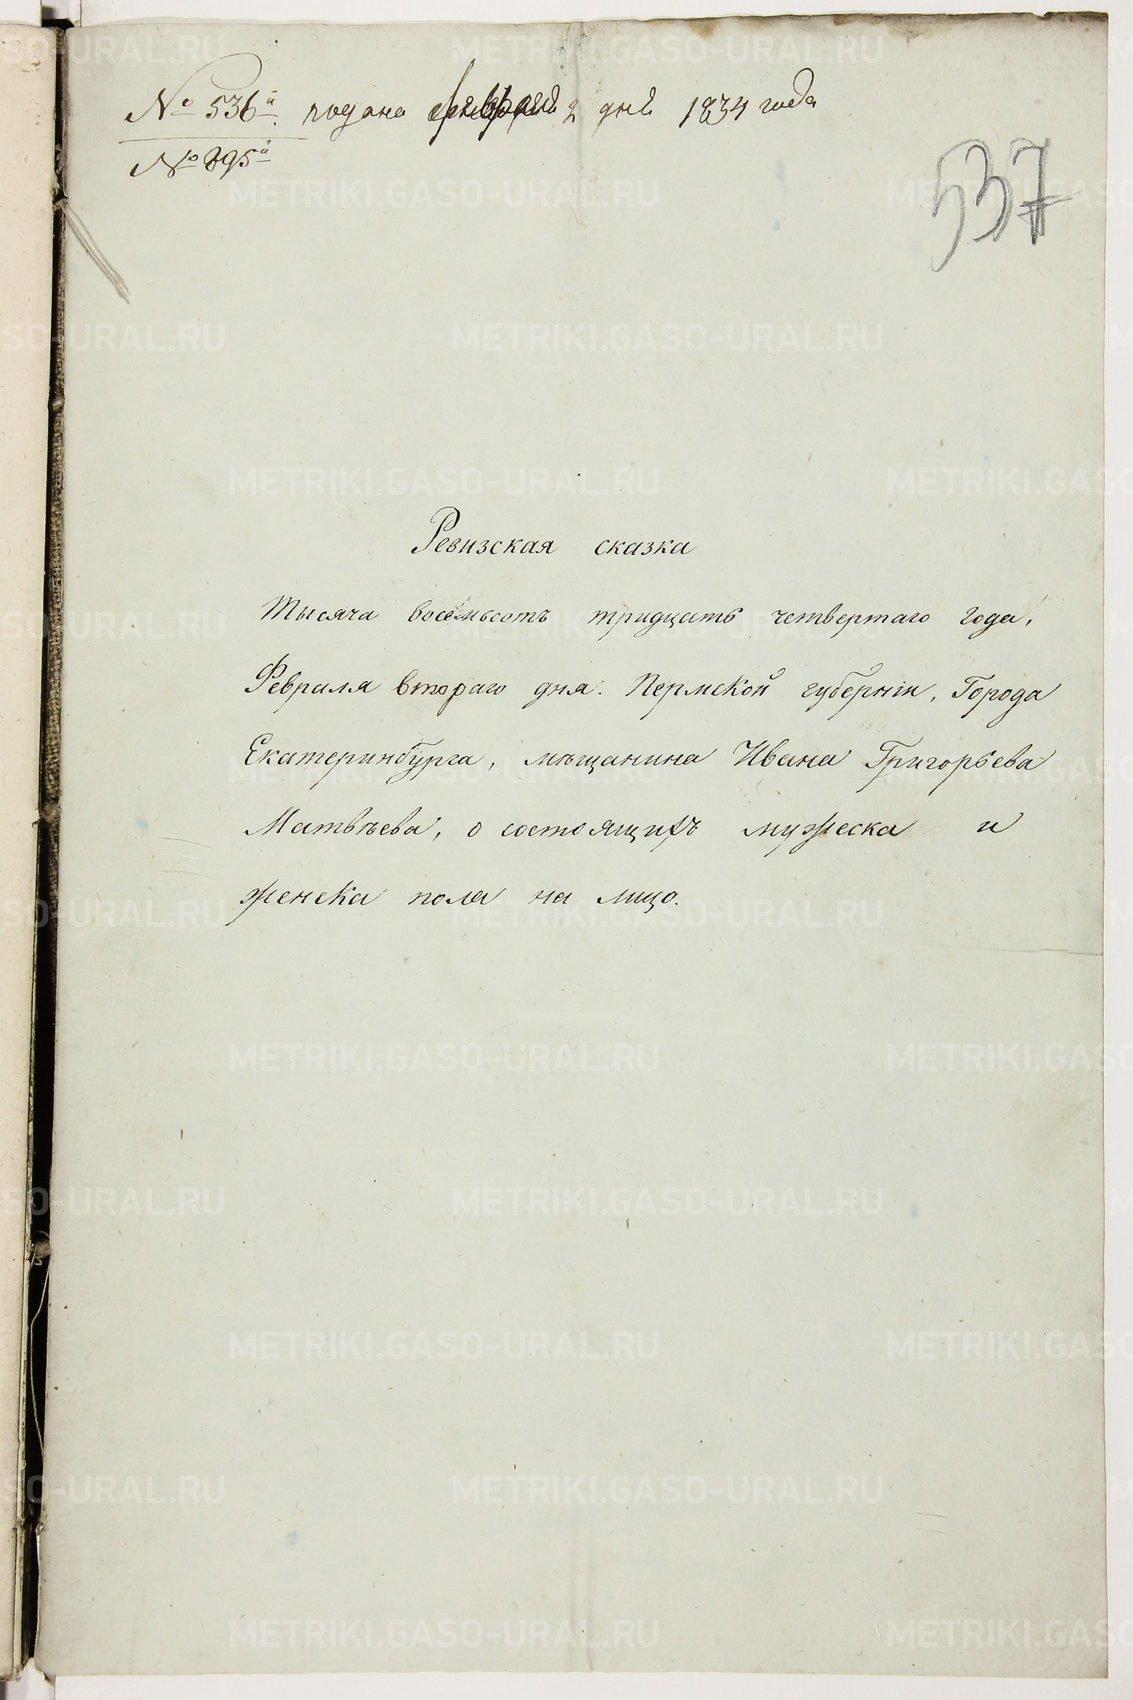 № 536й подана февраля 2 дня 1834 года
№ 895й
537
Ревизская сказка
Тысяча восемьсотъ тридцать четвертаго года,
Февраля втораго дня. Пермской губерніи, Города
Екатеринбурга, мѣщанина Ивана Григорьева
Матвѣева, о состоящихъ мужеска и
женска пола на лицо.
METRIKI.GASO-URAL.RU